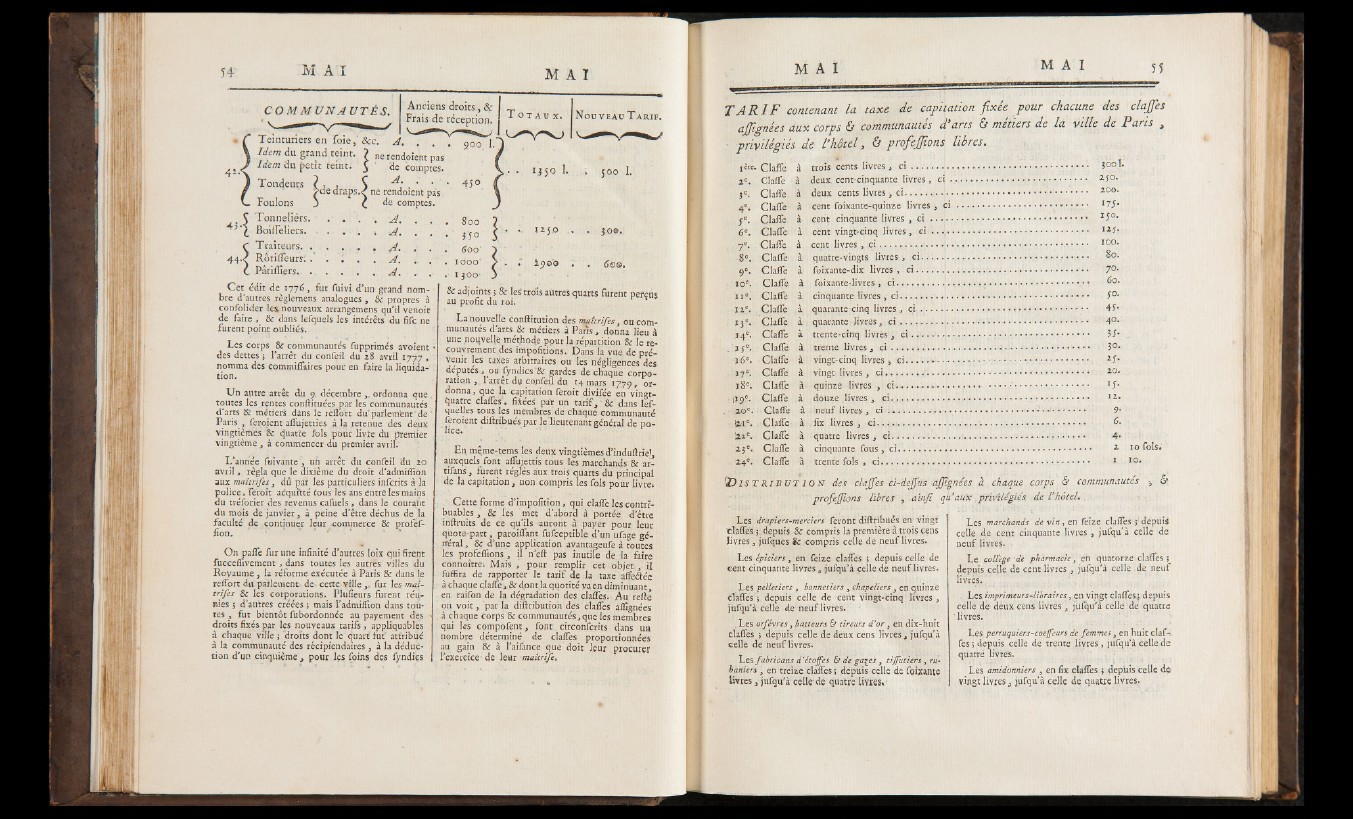 54 MAI MAI
COMMUNAUTÉS. Anciens droits, & Frais de réception. TOTAUX. NOUVEAU TARIF.
42. Teinturiers en ſoie, &c. A. . . . 900 l.
Idem du grand teint. ne rendoient pas
Idem du petit teint. de comptes. . . 1350 l. . 500 l.
Tondeurs de draps. A. . . . 450
Foulons ne rendoient pas de comptes.
43. Tonneliers. . . . . A. . . . 800
Boiſſeliers. . . . . A. . . . 350 . . 1250 . . 300.
44. Traiteurs. . . . . . A. . . . 600
Rôtiſſeurs. . . . . . A. . . . 1000 . . 2900 . . 600.
Pâtiſſiers. . . . . . A. . . . 1300
Cet édit de 1776, fut ſuivi d'un grand nom-
bre d'autres règlemens analogues, & propres à
conſolider les nouveaux arrangemens qu'il venoit
de faire, & dans leſquels les intérêts du fiſc ne
furent point oubliés.
Les corps & communautés ſupprimés avoient
des dettes; l'arrêt du conſeil du 28 avril 1777,
nomma des commiſſaires pour en faire la liquida-
tion.
Un autre arrêt du 9 décembre, ordonna que
toutes les rentes conſtituées par les communautés
d'arts & métiers dans le reſſort du parlement de
Paris, ſeroient aſſujetties à la retenue des deux
vingtièmes & quatre ſols pour livre du premier
vingtième, à commencer du premier avril.
L'année ſuivante, un arrêt du conſeil du 20
avril, règla que le dixième du droit d'admiſſion
aux maîtriſes, dû par les particuliers inſcrits à la
police, ſeroit acquitté tous les ans entre les mains
du tréſorier des revenus caſuels, dans le courant
du mois de janvier, à peine d'être déchus de la
faculté de continuer leur commerce & profeſ-
ſion.
On paſſe ſur une infinité d'autres loix qui firent
ſucceſſivement, dans toutes les autres villes du
Royaume, la réforme exécutée à Paris & dans le
reſſort du parlement de cette ville, ſur les maî-
triſes & les corporations. Pluſieurs furent réu-
nies; d'autres créées; mais l'admiſſion dans tou-
tes, fut bientôt ſubordonnée au payement des
droits fixés par les nouveaux tarifs, appliquables
à chaque ville; droits dont le quart fut attribué
à la communauté des récipiendaires, à la déduc-
tion d'un cinquième, pour les ſoins des ſyndics
& adjoints; & les trois autres quarts furent perçus
au profit du roi.
La nouvelle conſtitution des maîtriſes, ou com-
munautés d'arts & métiers à Paris, donna lieu à
une nouvelle méthode pour la répartition & le re-
couvrement des impoſitions. Dans la vue de pré-
venir les taxes arbitraires ou les négligences des
députés, ou ſyndics & gardes de chaque corpo-
ration, l'arrêt du conſeil du 14 mars 1779, or-
donna, que la capitation ſeroit diviſée en vingt-
quatre claſſes, fixées par un tarif, & dans leſ-
quelles tous les membres de chaque communauté
ſeroient diſtribués par le lieutenant général de po-
lice.
En même-tems les deux vingtièmes d'induſtrie,
auxquels ſont aſſujettis tous les marchands & ar-
tiſans, furent réglés aux trois quarts du principal
de la capitation, non compris les ſols pour livre.
Cette forme d'impoſition, qui claſſe les contri-
buables, & les met d'abord à portée d'être
inſtruits de ce qu'ils auront à payer pour leur
quote-part, paroiſſant ſuſceptible d'un uſage gé-
néral, & d'une application avantageuſe à toutes
les profeſſions, il n'eſt pas inutile de la faire
connoître. Mais, pour remplir cet objet, il
ſuffira de rapporter le tarif de la taxe affectée
à chaque claſſe, & dont la quotité va en diminuant,
en raiſon de la dégradation des claſſes. Au reſte
on voit, par la diſtribution des claſſes aſſignées
à chaque corps & communautés, que les membres
qui les compoſent, ſont circonſcrits dans un
nombre déterminé de claſſes proportionnées
au gain & à l'aiſance que doit leur procurer
l'exercice de leur maîtriſe.
MAI MAI 55
TARIF contenant la taxe de capitation fixée pour chacune des claſſes
aſſignées aux corps & communautés d'arts & métiers de la ville de Paris,
privilégiés de l'hôtel, & profeſſions libres.
1ère. Claſſe à trois cents livres, ci . . . . 300 l.
2e. Claſſe à deux cent-cinquante livres, ci . . . . 250.
3e. Claſſe à deux cents livres, ci . . . . 200.
4e. Claſſe à cent ſoixante-quinze livres, ci . . . . 175.
5e. Claſſe à cent cinquante livres, ci . . . . 150.
6e. Claſſe à cent vingt-cinq livres, ci . . . . 125.
7e. Claſſe à cent livres, ci . . . . 100.
8e. Claſſe à quatre-vingts livres, ci . . . . 80.
9e. Claſſe à ſoixante-dix livres, ci . . . . 70.
10e. Claſſe à ſoixante-livres, ci . . . . 60.
11e. Claſſe à cinquante livres, ci . . . . 50.
12e. Claſſe à quarante-cinq livres, ci . . . . 45.
13e. Claſſe à quarante livres, ci . . . . 40.
14e. Claſſe à trente-cinq livres, ci . . . . 35.
15e. Claſſe à trente livres, ci . . . . 30.
16e. Claſſe à vingt-cinq livres, ci . . . . 25.
17e. Claſſe à vingt livres, ci . . . . 20.
18e. Claſſe à quinze livres, ci . . . . 15.
19e. Claſſe à douze livres, ci . . . . 12.
20e. Claſſe à neuf livres, ci . . . . 9.
21e. Claſſe à ſix livres, ci . . . . 6.
22e. Claſſe à quatre livres, ci . . . . 4.
23e. Claſſe à cinquante ſous, ci . . . . 2 10 ſols.
24e. Claſſe à trente ſols, ci . . . . 1 10.
DISTRIBUTION des claſſes ci-deſſus aſſignées à chaque corps & communautés, &
profeſſions libres, ainſi qu'aux privilégiés de l'hôtel.
Les drapiers-merciers ſeront diſtribués en vingt
claſſes; depuis & compris la première à trois cens
livres, juſques & compris celle de neuf livres.
Les épiciers, en ſeize claſſes; depuis celle de
cent cinquante livres, juſqu'à celle de neuf livres.
Les pelletiers, bonnetiers, chapeliers, en quinze
claſſes; depuis celle de cent vingt-cinq livres,
juſqu'à celle de neuf livres.
Les orfèvres, batteurs & tireurs d'or, en dix-huit
claſſes; depuis celle de deux cens livres, juſqu'à
celle de neuf livres.
Les fabricans d'étoffes & de gazes, tiſſutiers, ru-
baniers, en treize claſſes; depuis celle de ſoixante
livres, juſqu'à celle de quatre livres.
Les marchands de vin, en ſeize claſſes; depuis
celle de cent cinquante livres, juſqu'à celle de
neuf livres.
Le collège de pharmacie, en quatorze claſſes;
depuis celle de cent livres, juſqu'à celle de neuf
livres.
Les imprimeurs-libraires, en vingt claſſes; depuis
celle de deux cens livres, juſqu'à celle de quatre
livres.
Les perruquiers-coeffeurs de femmes, en huit claſ-
ſes; depuis celle de trente livres, juſqu'à celle de
quatre livres.
Les amidonniers, en ſix claſſes; depuis celle de
vingt livres, juſqu'à celle de quatre livres.